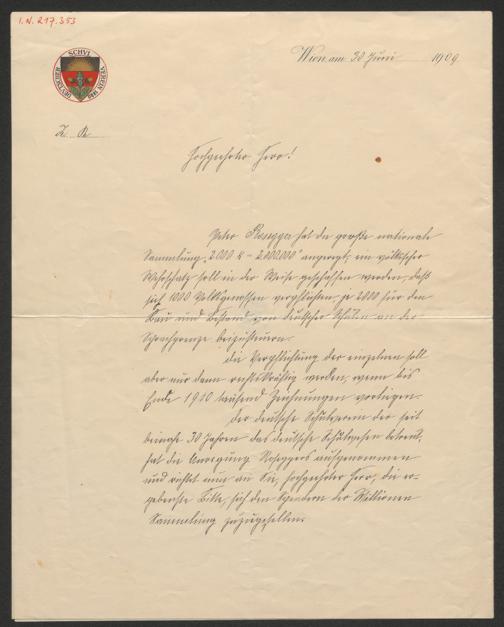 I.N. 217.353
DEUTSCHER SCHUL VEREIN 1880
Wien am 30 Juni 1909
Z. A
Hochgeehrter Herr!
Peter Rosegger hat die große nationale
Sammlung „2000 K = 2,000.000" angeregt; ein völkischer
Wehrschatz soll in der Weise geschaffen werden, daß
sich 1000 Volksgenossen verpflichten, je 2000 für den
Bau und Bestand von deutscher Schulen an der
Sprachgrenze beizusteuern.
Die Verpflichtung der einzelnen soll
aber nur dann rechtskräftig werden, wenn bis
Ende 1910 tausend Zeichnungen vorliegen.
Der deutsche Schulverein der seit
beinahe 30 Jahren das deutsche Schulwesen betreut,
hat die Anregung Roseggers aufgenommen
und richtet nun an Sie, hochgeehrter Herr, die er-
gebenste Bitte, sich den Spendern der Millionen
Sammlung zuzugesellen.